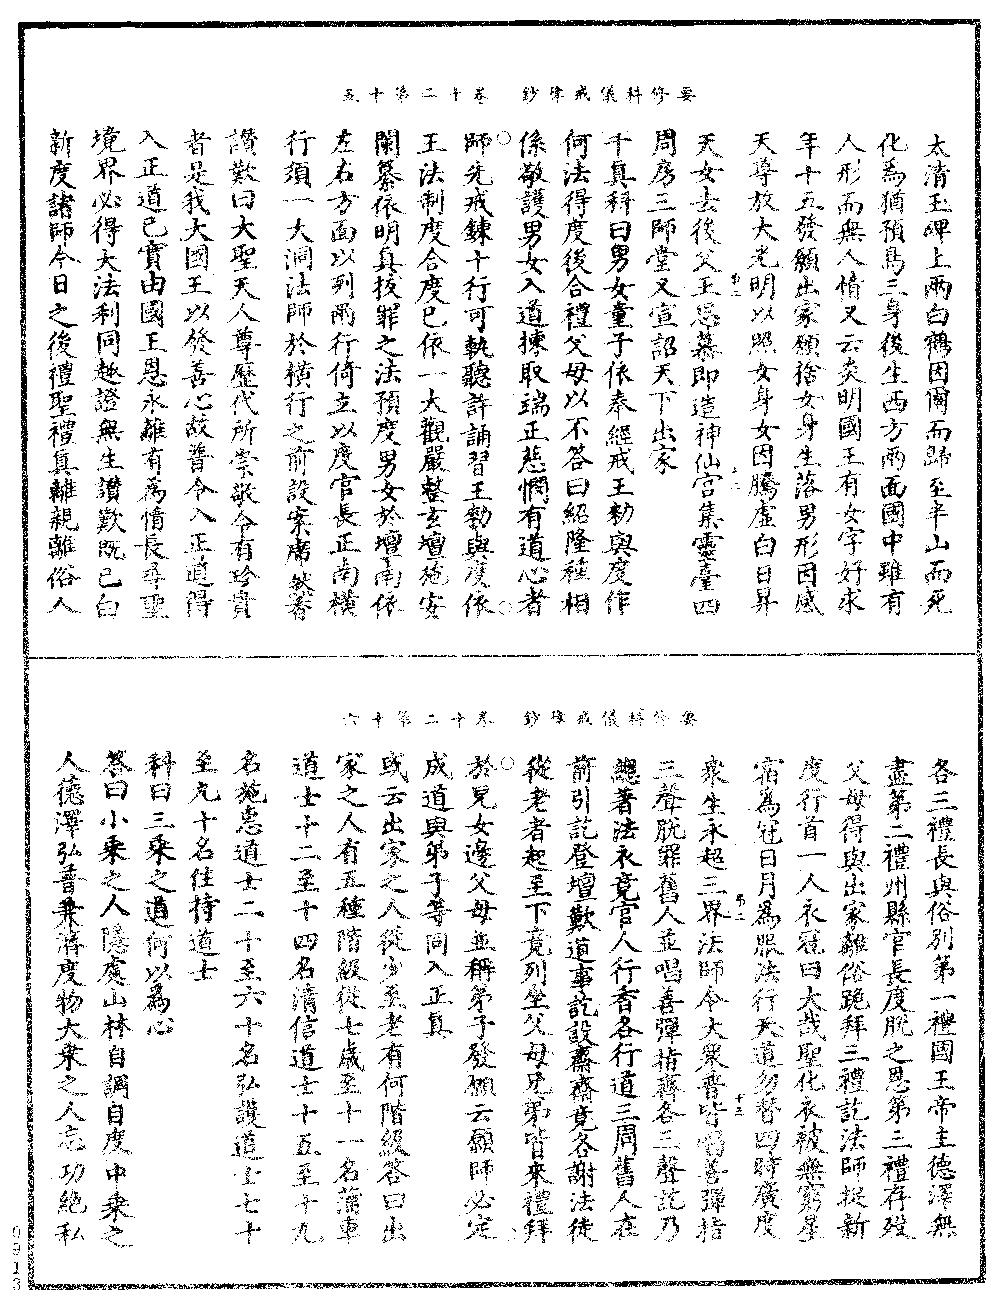 要修科儀戒律鈔　卷十二第十五
太清玉碑上兩白鶴因圖而歸至半山而死
化為猶預鳥三身後生西方兩面國中雖有
人形而無人情又云炎明國王有女字好求
年十五發願出家願捨女身生落男形因感
天尊放大光明以照女身女因騰虛白日昇
天女去後父王思慕即造神仙宮集靈臺四
周房三師堂又宣詔天下出家
千真科曰男女童子依奉經戒王勑與度作
何法得度後合禮父母以不答曰紹隆種相
係敬護男女入道揀取端正慈憫有道心者
師先戒鍊十行可軌聽許誦習王勑與度依
王法制度合度已依一大觀嚴整玄壇施安
闌纂依明真拔罪之法預度男女於壇南依
左右方面以列兩行倚立以度官長正南橫
行須一大洞法師於橫行之前設案席然香
讚歎曰大聖天人尊歷代所崇敬令有珍貴
者是我大國王以發善心故普令入正道得
入正道已實由國王恩永離有為情長尋聖
境界必得大法利同趣證無生讚歎既已白
新度諸師今日之後禮聖禮真離親離俗人
要修科儀戒律鈔　卷十二第十六
各三禮長與俗別第一禮國王帝主德澤無
盡第二禮州縣官長度脫之恩第三禮存殁
父母得與出家離俗跪拜三禮訖法師捉新
度行首一人衣冠曰大哉聖化衣被無窮星
宿為冠日月為服法行天道勿替四時廣度
衆生永超三界法師令大衆普皆唱善彈指
三聲脫罪舊人並唱善彈指齊各三聲訖乃
總著法衣竟官人行香各行道三周舊人在
前引訖登壇歎道事訖設齋齋竟各謝法徒
從老者起至下竟列坐父母兄弟皆來禮拜
於兒女邊父母並稱弟子發願云願師必定
成道與弟子等同入正真
或云出家之人從少至老有何階級答曰出
家之人有五種階級從七歲至十一名蒲車
道士十二至十四名清信道士十五至十九
名施惠道士二十至六十名弘護道士七十
至九十名住持道士
科曰三乘之道何以為心
答曰小乘之人隱處山林自調自度中乘之
人德澤弘普兼濟度物大乘之人忘功絕私